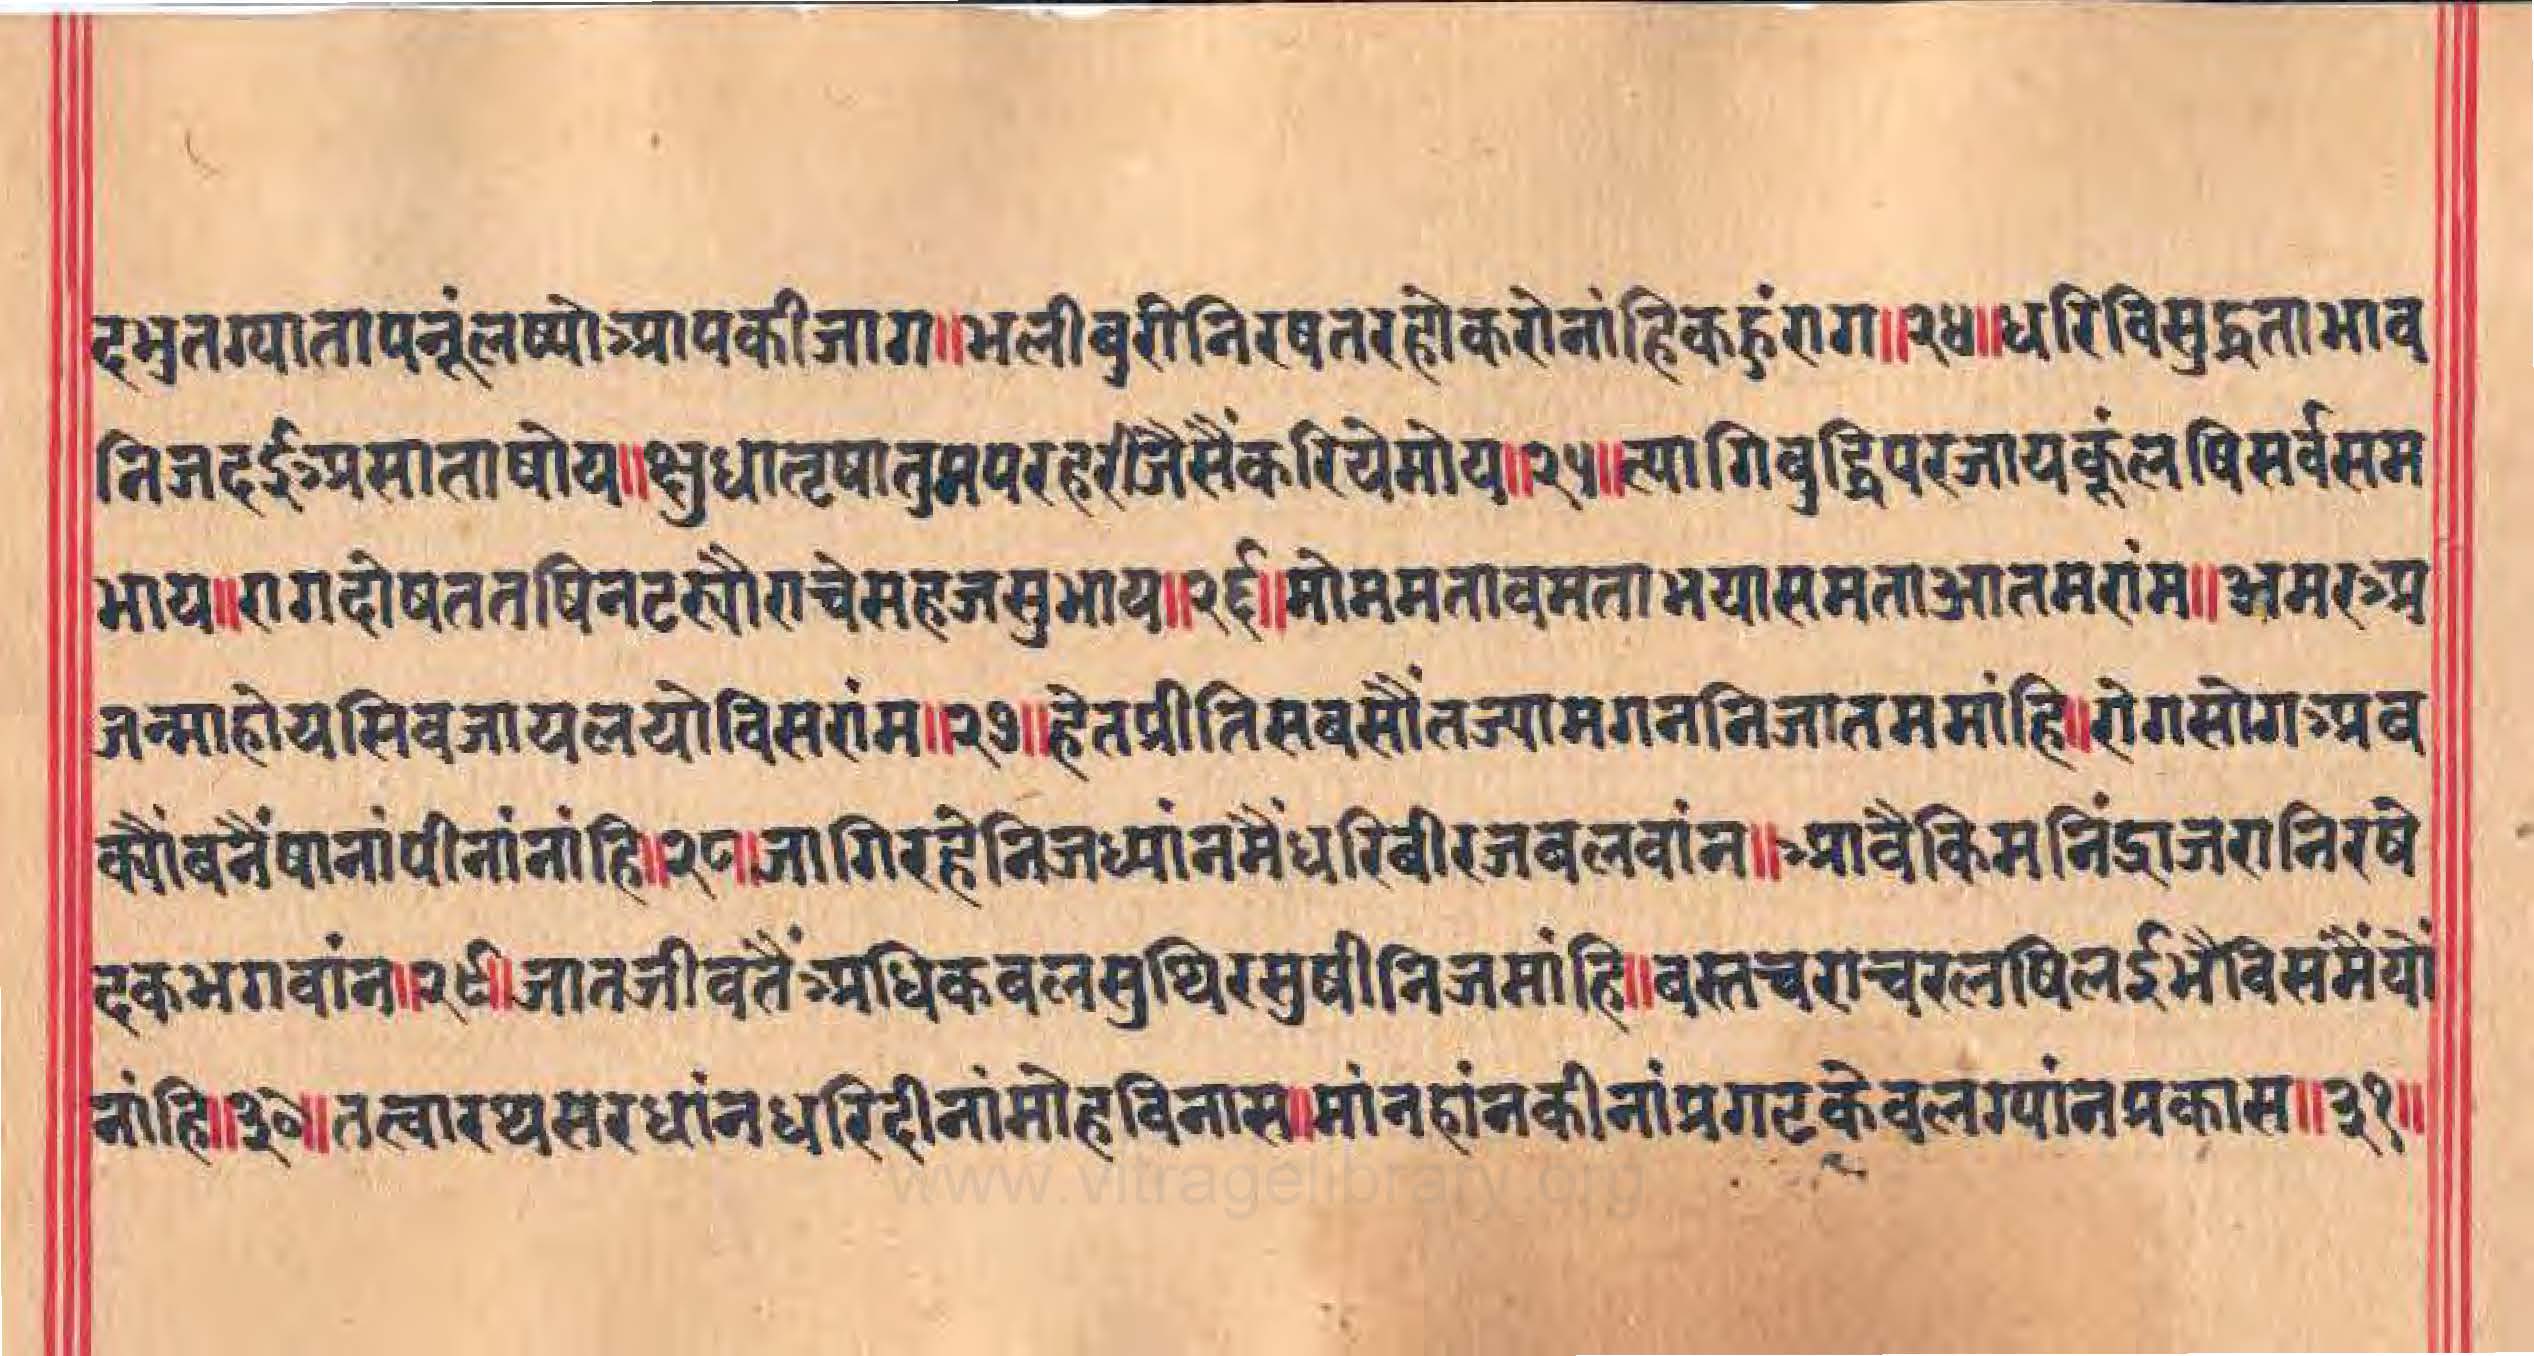 दभुतग्यातापनूंलष्योआपकीजाग॥भलीबुरीनिरषतरहौकरोनांहिकहुंराग॥२४॥धरिविसुद्धताभाव
निजदईअसाताषोय॥क्षुधातृषातुमपरहरीजैसैंकरियेमोय॥२५॥त्यागिबुद्धिपरजायकूंलषिसर्वसम
भाय॥रागदोषततषिनटर्‍यौराचेसहजसुभाय॥२६॥मोममतावमताभयासमताआतमरांम॥अमरअ
जन्माहोयसिवजायलयोविसरांम॥२७॥हेतप्रीतिसबसौंतज्यामगननिजातममांहि॥रोगसोगअब
क्यौंबनैंषानांपीनांनांहि॥२८॥जागिरहेनिजध्यांनमैंधरिबीरजबलवांन॥आवैकिमनिंद्राजरानिरषे
दकभगवांन॥२९॥जातजीवतैंअधिकबलसुथिरसुषीनिजमांहि॥बस्तचराचरलषिलईभौविसंमैंयों
नांहि॥३०॥तत्वारथसरधांनधरिदीनांमोहविनास॥मांनहांनकीनांप्रगटकेवलग्यांनप्रकास॥३१॥
www.vitragelibrary.org